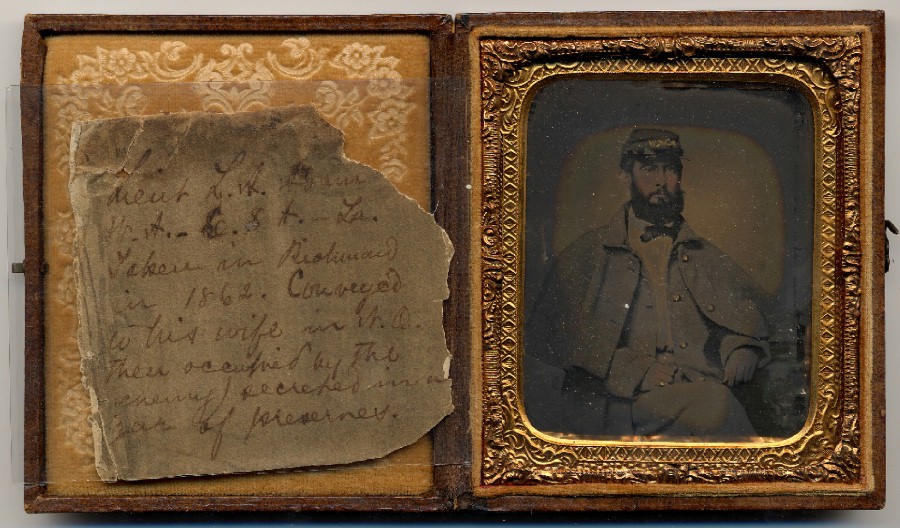 Lieut L. A. Adam
W. A. - C. S. A. - La.
Taken in Richmond
in 1862. Conveyed
to his wife in N. O.
then occupied by the
enemy) secreted in a
jar of preserves.